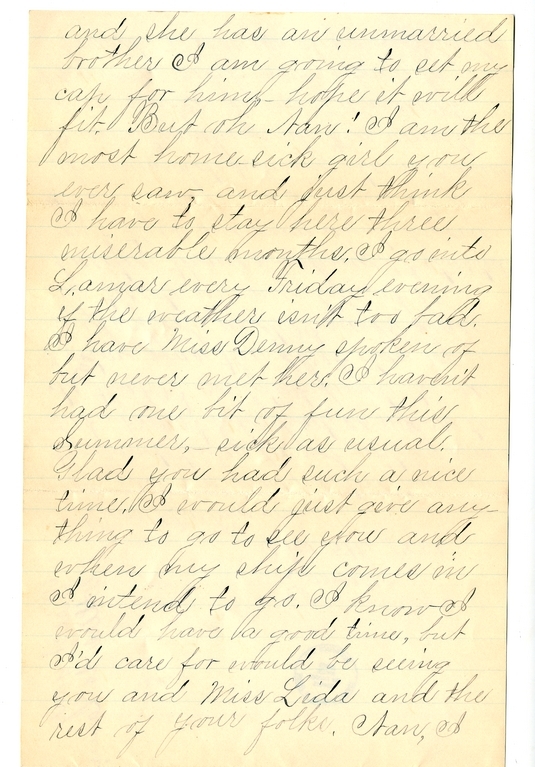 and she has an unmarried
brother I am going to set my
cap for him - hope it will
fit. But oh Nan! I am the
most home sick girl you
ever saw, and just think
I have to stay here three
miserable months. I go into
Lamar every Friday evening
if the weather isn't too bad.
I have Miss Denny spoken of
but never met her. I haven't
had one bit of fun this
Summer, - sick as usual.
Glad you had such a nice
time. I would just give any-
thing to go to see you and
when my ship comes in
I intend to go. I know I
would have a good time, but
I'd care for would be seeing
you and Miss Lida and the
rest of your folks. Nan, I